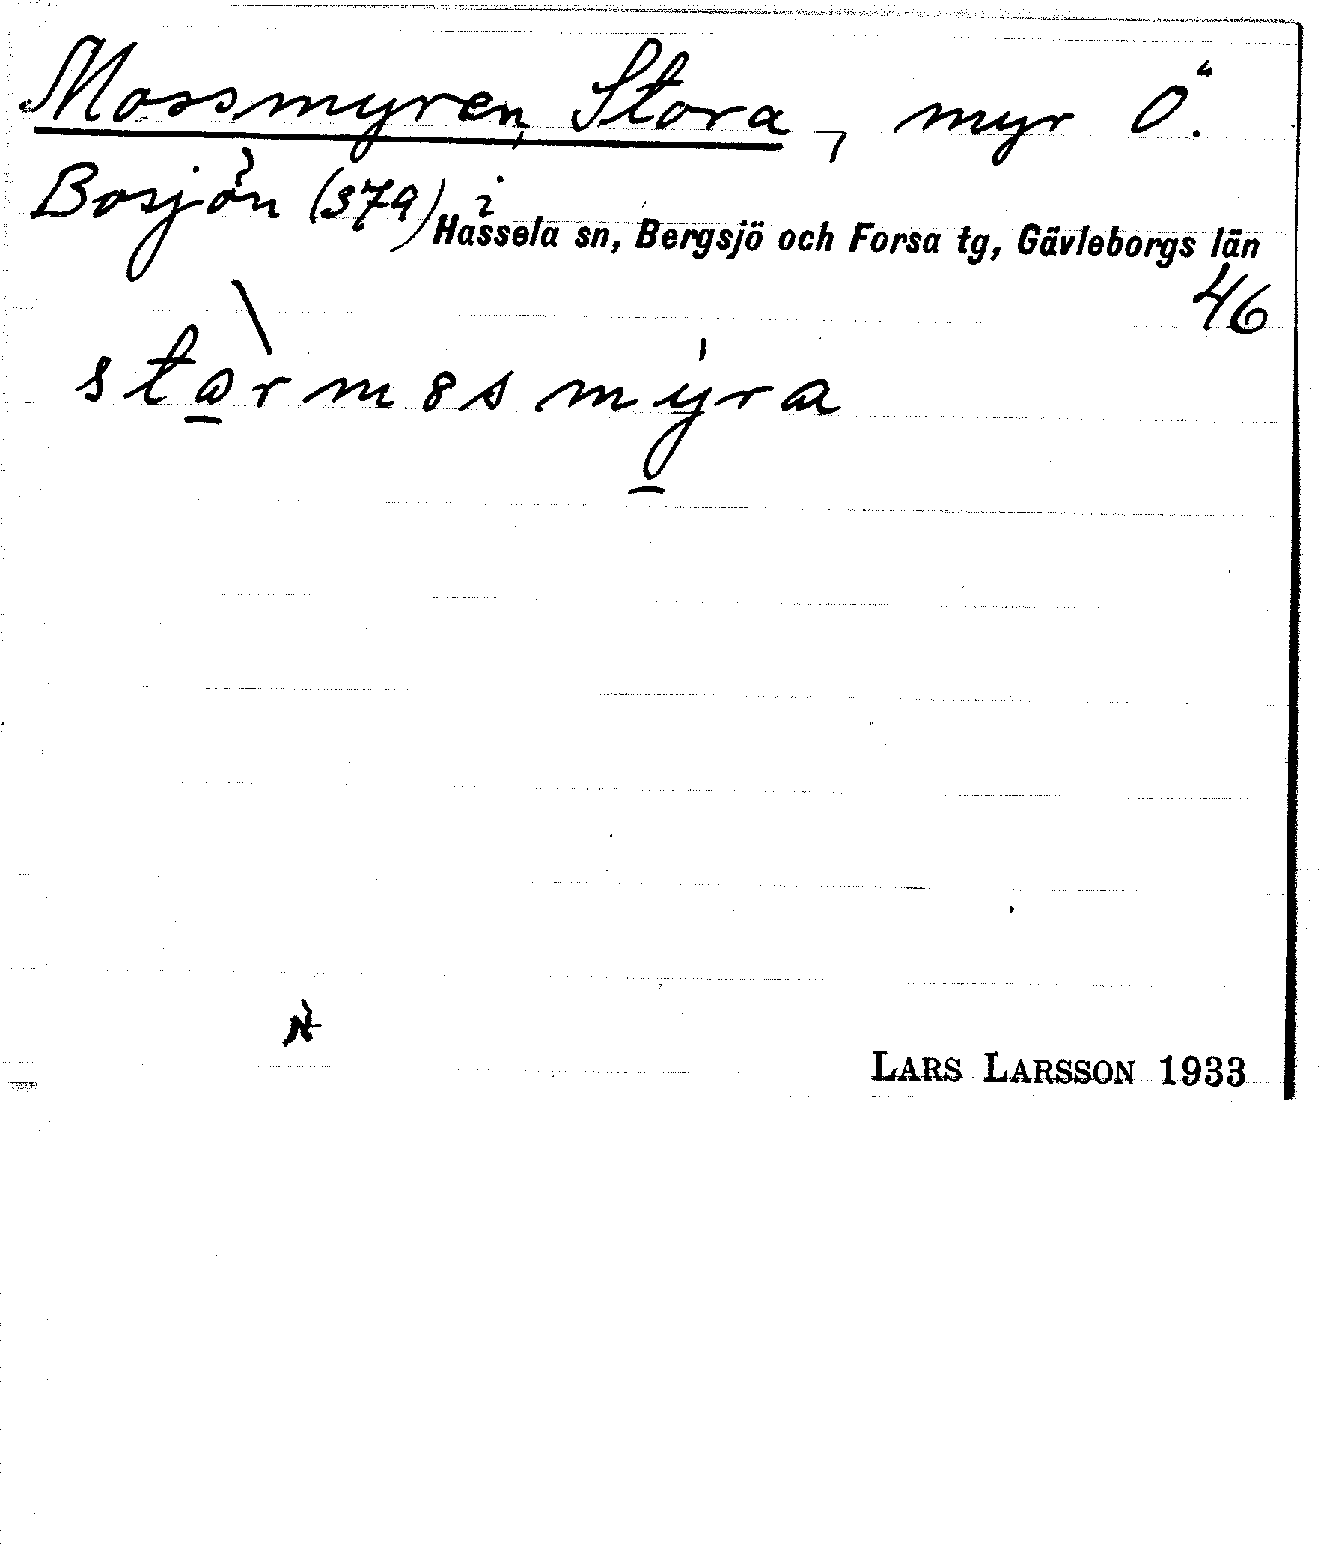 Mossmyren, Stora, myr Ö.
Bosjön (379) i
Hassela sn, Bergsjö och Forsa tg, Gävleborgs län
46
stormosmyra
LARS LARSSON 1933